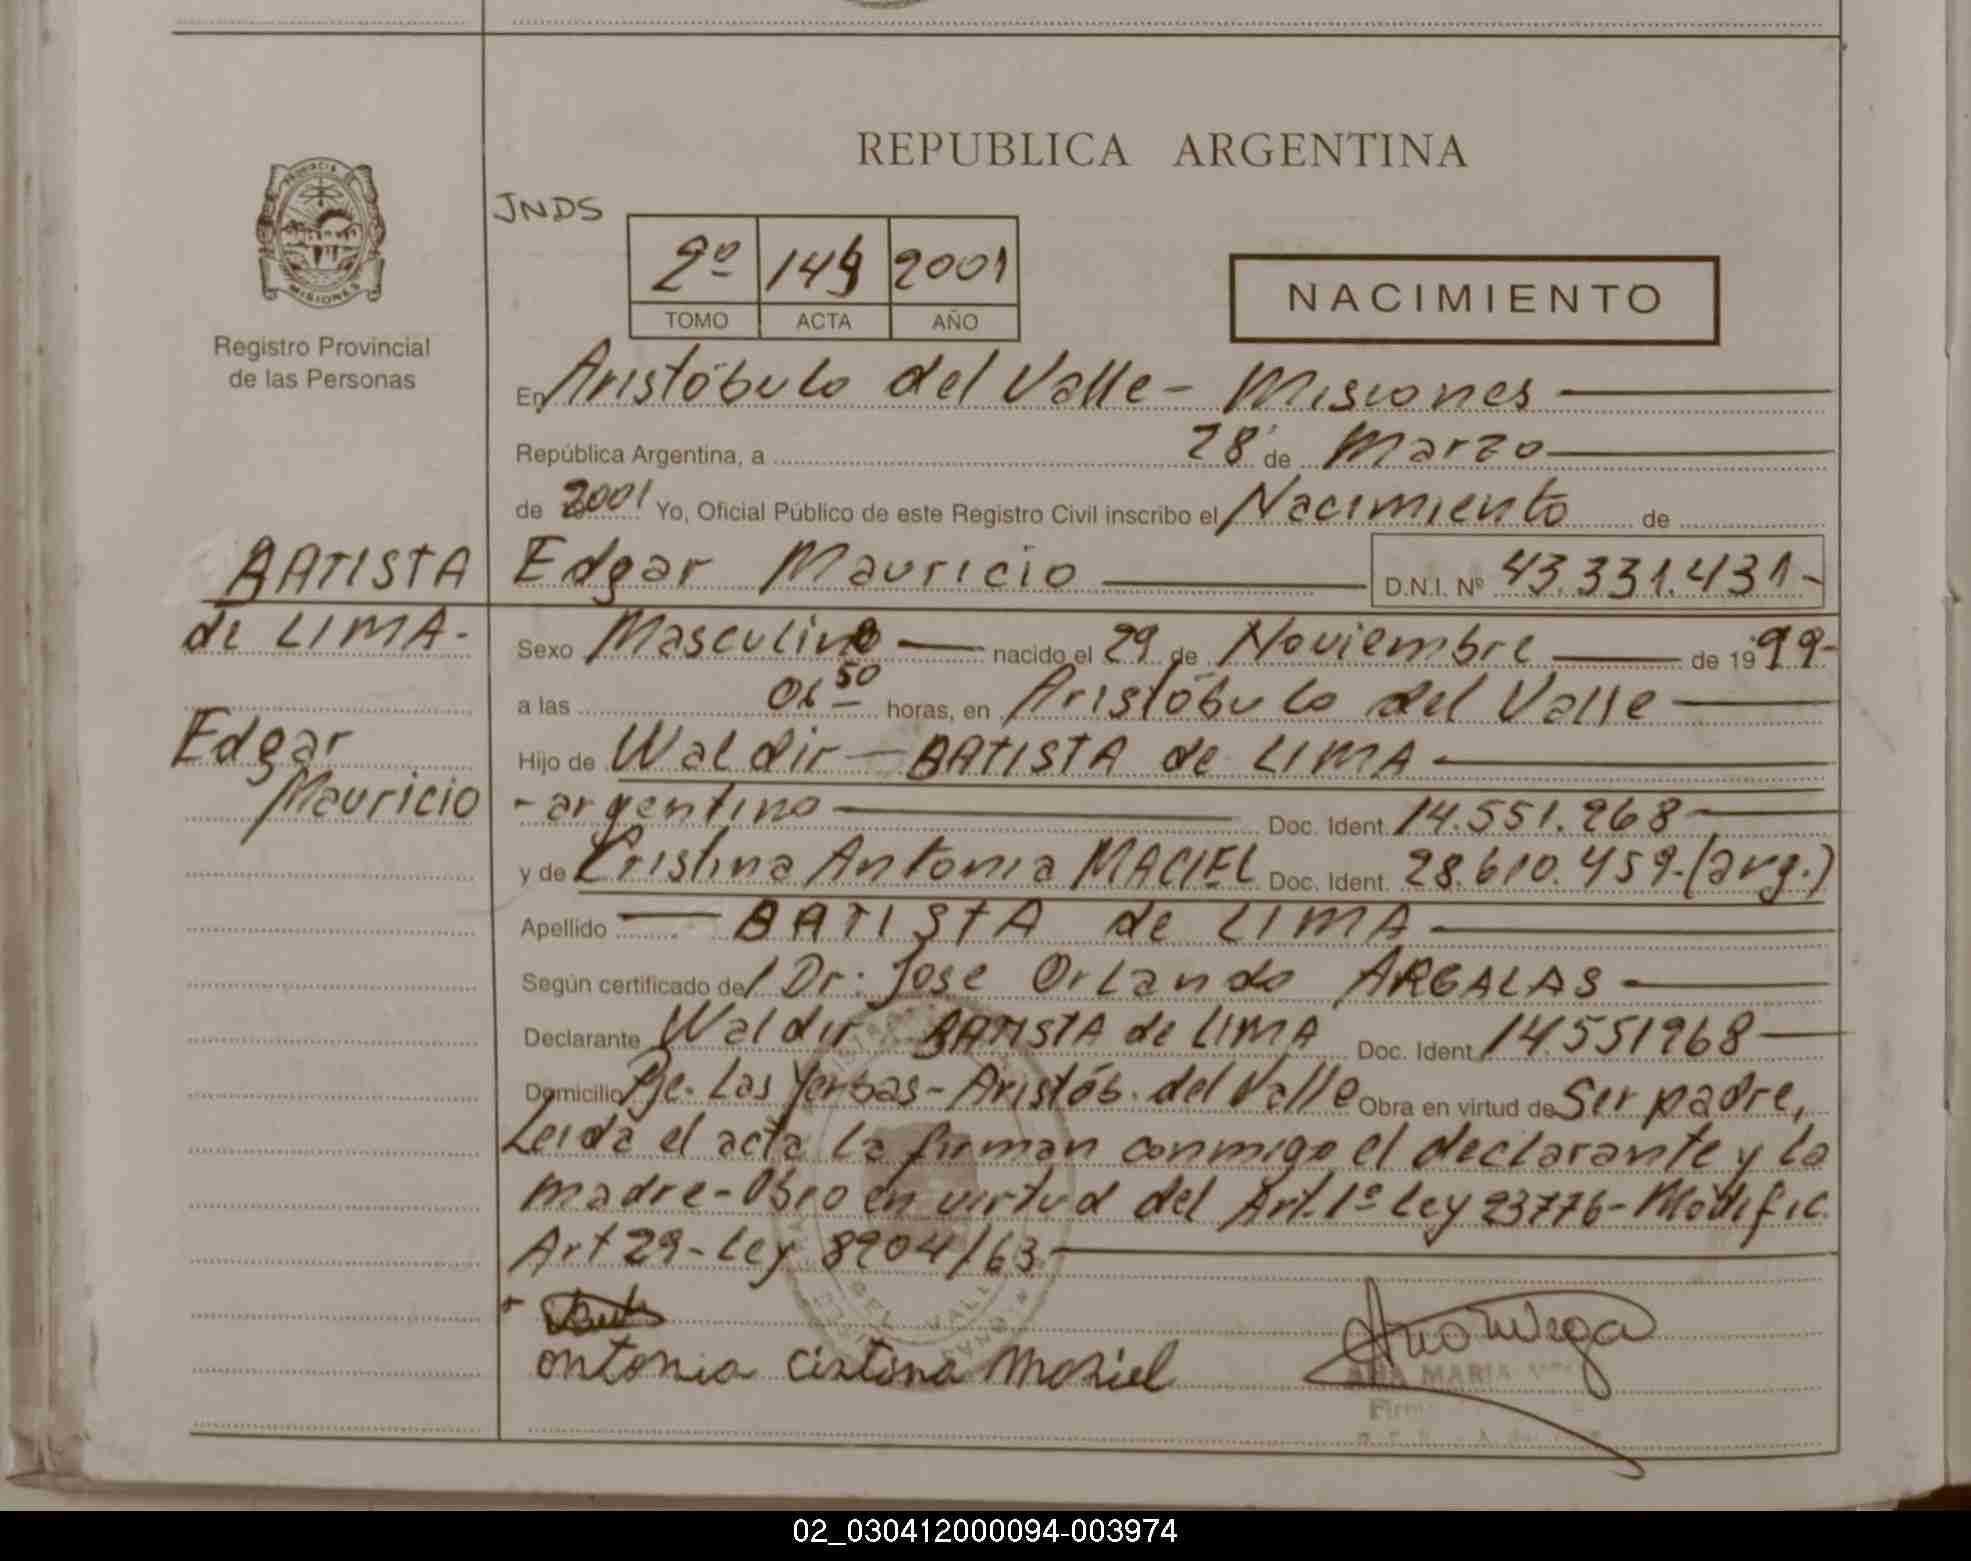 REPUBLICA ARGENTINA
PROVINCIA DE
MISIONES
Registro Provincial
de las Personas
JNDS
2º 149 2001
TOMO ACTA AÑO
NACIMIENTO
En Aristóbulo del Valle - Misiones
República Argentina, a 28 de Marzo
de 2001 Yo, Oficial Público de este Registro Civil inscribo el Nacimiento de
BATISTA
de LIMA.
Edgar
Mauricio
Edgar Mauricio D.N.I. Nº 43.331.431-
Sexo Masculino nacido el 29 de Noviembre de 1999-
a las 06 50 horas, en Aristóbulo del Valle
Hijo de Waldir BATISTA de LIMA
- argentino Doc. Ident. 14.551.968
y de Cristina Antonia MACIEL Doc. Ident. 28.610.459.(arg.)
Apellido BATISTA de LIMA
Según certificado del Dr: Jose Orlando ARGALAS
Declarante Waldir BATISTA de LIMA Doc. Ident. 14.551968
Domicilio Pje. Las Yerbas - Aristób. del Valle Obra en virtud de Ser padre,
Leida el acta la firman conmigo el declarante y la
madre - Obro en virtud del Art. 1º Ley 23776 - Modific.
Art 29 - Ley 8204/63
DEL VALLE
antonia cistina Maziel
ANA MARIA
02_030412000094-003974